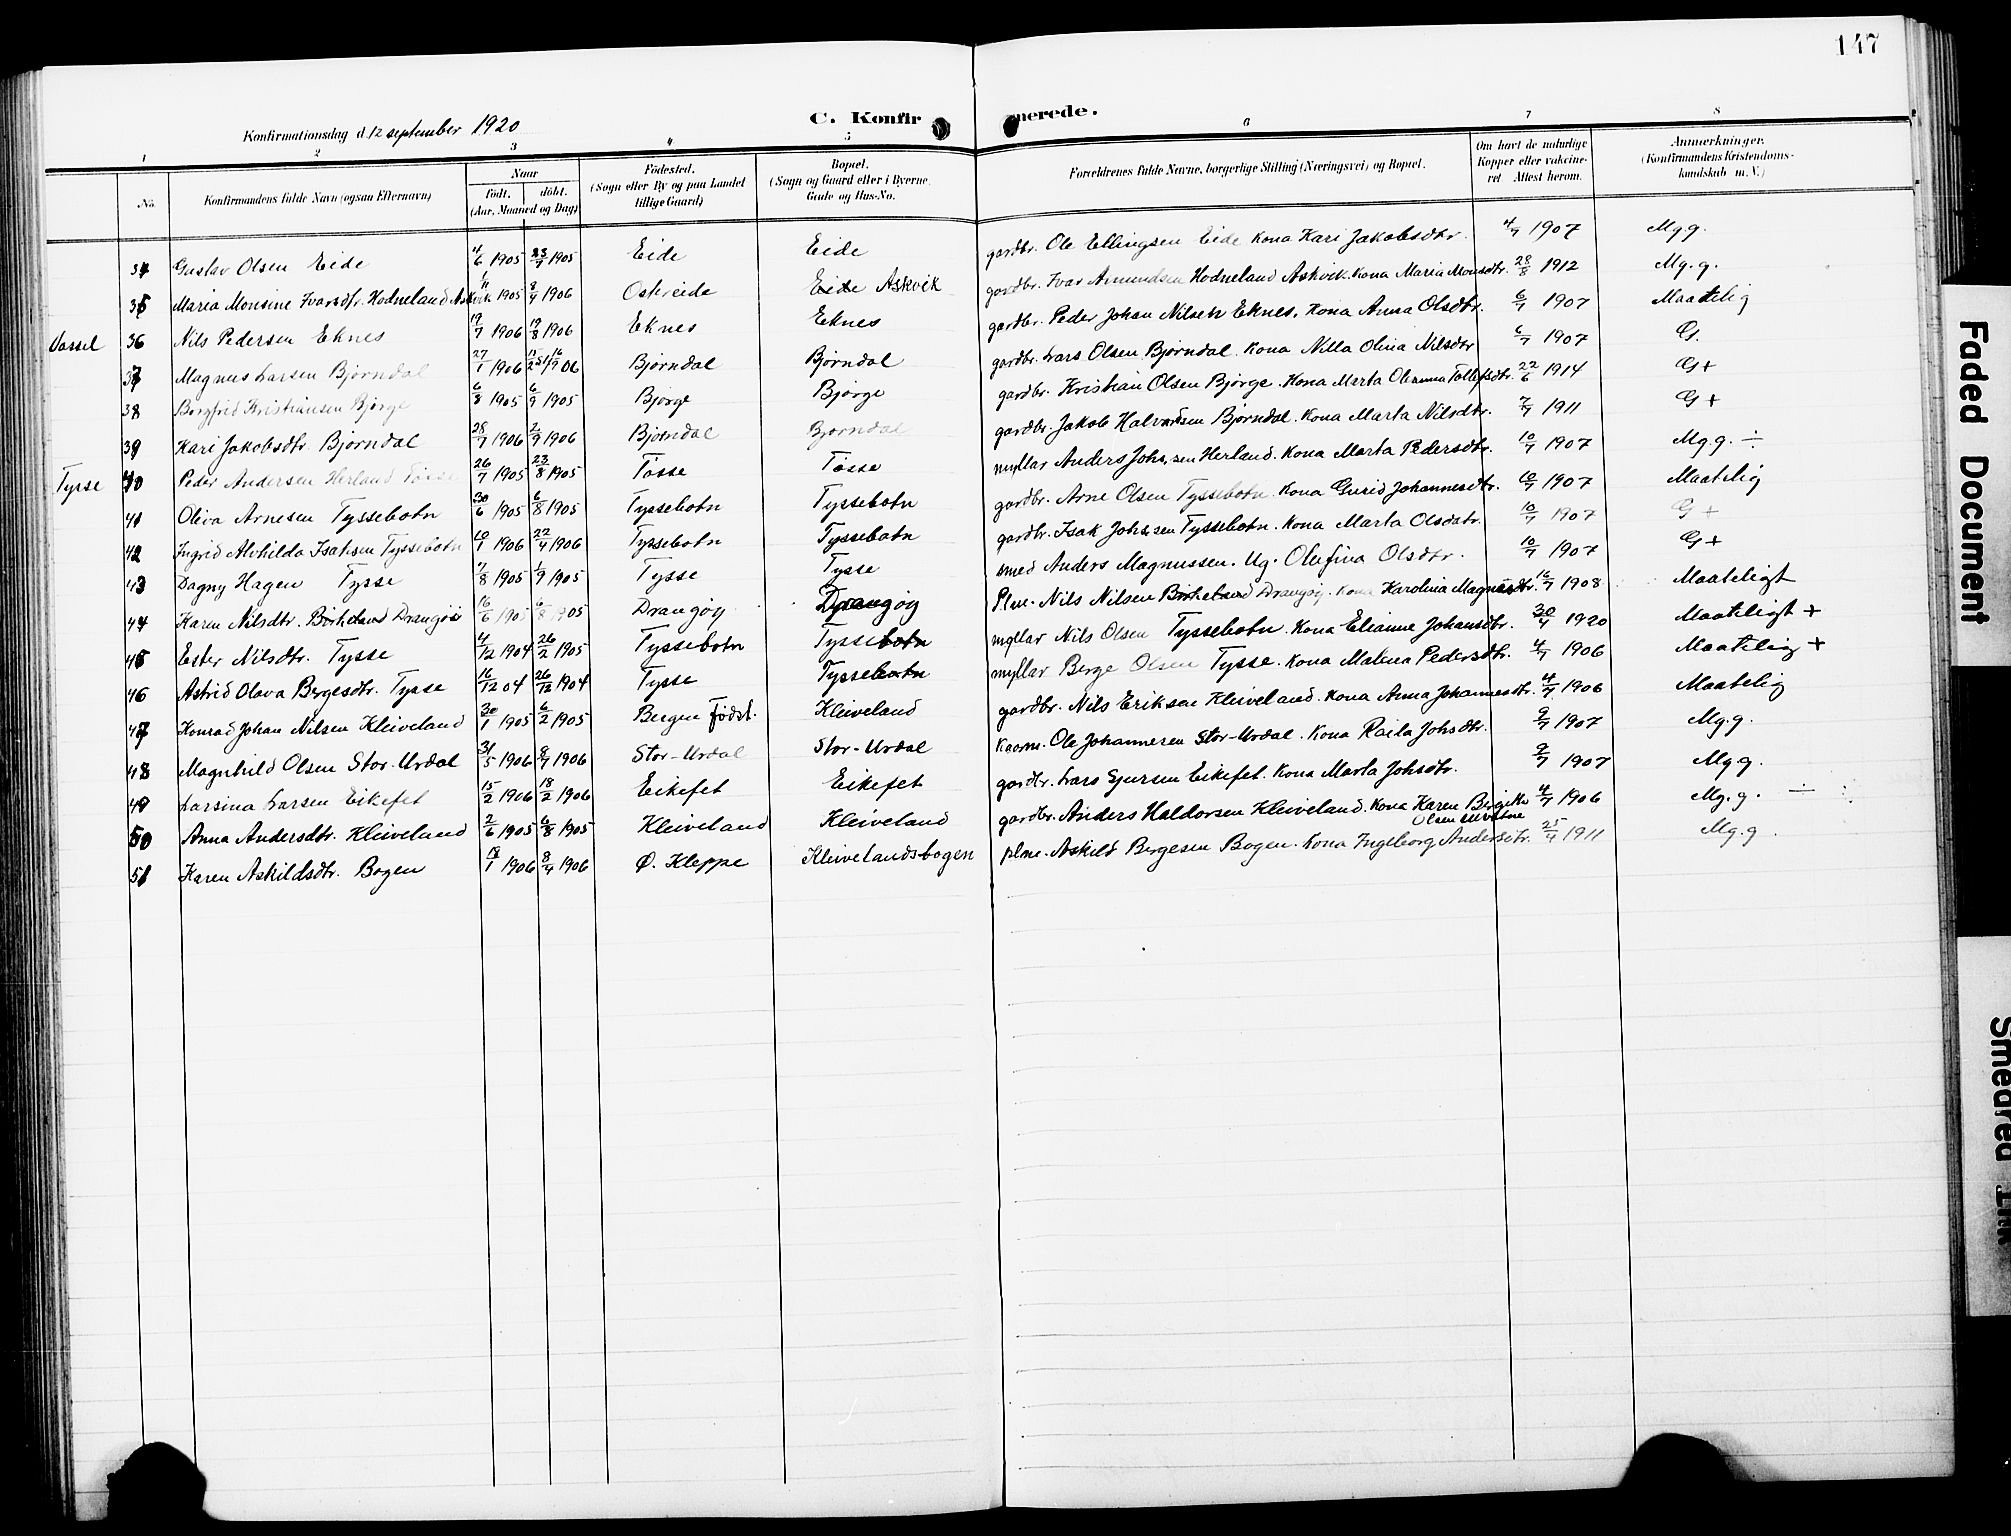 147
C. Konfirmerede.
Konfirmationsdag d. 12 september 1920
1 2 3 4 5 6 7 8
No. Konfirmandens fulde Navn (ogsaa Efternavn) Naar født. døbt. (Aar, Maaned og Dag) Fødested. (Sogn eller By og paa Landet tillige Gaard) Bopæl. (Sogn og Gaard eller i Byerne Gade og Hus-No. Forældrenes fulde Navne, borgerlige Stilling (Næringsvei) og Bopæl. Om havt de naturlige Kopper eller vakcineret Attest herom. Anmærkninger. (Konfirmandens Kristendomskundskab m. V.)
34 Gustav Olsen Eide 4/6 1905 23/7 1905 Eide Eide gardbr. Ole Ellingsen Eide kona Kari Jakobsdtr. 4/7 1907 Mg g.
35 Maria Monsine Ivarsdtr. Hodneland Askvik 1905 8/4 1906 Ostereide Eide Askvik gardbr. Ivar Amundsen Hodneland Askvik. Kona Maria Monsdtr. 28/8 1912 Mg. g.
Vassel 36 Nils Pedersen Eknes 19/7 1906 19/8 1906 Eknes Eknes gardbr. Peder Johan Nilsen Eknes. Kona Anna Olsdtr. 6/7 1907 Maatelig
37 Magnus Larsen Bjørndal 27/1 1906 1906 Bjørndal Bjørndal gardbr. Lars Olsen Bjørndal. Kona Nilla Olina Nilsdtr 6/7 1907 G.
38 Borgfrid Kristiansen Bjørge 6/8 1905 6/9 1905 Bjørge Bjørge gardbr. Kristian Olsen Bjørge. Kona Marta Oleanna Tollefsdtr. 22/6 1914 G+
39 Kari Jakobsdtr. Bjørndal 28/7 1906 2/9 1906 Bjørndal Bjørndal gardbr. Jakob Halvardsen Bjørndal. Kona Marta Nilsdtr. 7/7 1911 G +
Tysse 40 Peder Andersen Herland Tøsse 26/7 1905 23/8 1905 Tøsse Tøsse myllar Anders Johs.sen Herland. Kona Marta Pedersdtr. 10/7 1907 Mg. g. ÷
41 Oliva Arnesen Tyssebotn 30/6 1905 6/8 1905 Tyssebotn Tyssebotn gardbr. Arne Olsen Tyssebotn. Kona Gurid Johannesdtr. 10/7 1907 Maatelig
42 Ingrid Alvhilda Isaksen Tyssebotn 10/1 1906 22/4 1906 Tyssebotn Tyssebotn gardbr. Isak Johs.sen Tyssebotn. Kona Marta Olsdatr. 10/7 1907 G +
43 Dagny Hagen Tysse 7/8 1905 1/9 1905 Tysse Tysse smed Anders Magnussen. Ug. Olufina Olsdtr. 10/7 1907 G +
44 Karen Nilsdtr. Birkeland Drangøi 16/6 1905 6/8 1905 Drangøy Drangøy Plm. Nils Nilsen Birkeland Drangøy. Kona Karolina Magnusdtr. 16/7 1908 Maateligt
45 Ester Nilsdtr. Tysse 4/12 1904 26/2 1905 Tyssebotn Tyssebotn myllar Nils Olsen Tyssebotn. Kona Elianne Johansdtr. 30/4 1920 Maateligt +
46 Astrid Olava Bergesdtr. Tysse 16/12 04 26/12 1904 Tysse Tyssebotn myllar Berge Olsen Tysse. Kona Malena Pedersdtr. 4/7 1906 Maatelig +
47 Konrad Johan Nilsen Kleiveland 30/1 1905 6/2 1905 Bergen Fødst. Kleiveland gardbr. Nils Eriksen Kleiveland. Kona Anna Johannesdtr. 4/7 1906 Maatelig
48 Magnhild Olsen Stor-Urdal 31/5 1906 8/7 1906 Stor-Urdal Stor-Urdal Kaarm. Ole Johannesen Stor-Urdal. Kona Raila Johsdtr. 9/7 1907 Mg. g.
49 Larsina Larsen Eikefet 15/2 1906 18/2 1906 Eikefet Eikefet gardbr. Lars Gjursen Eikefet. Kona Marta Johsdtr. 9/7 1907 Mg g.
50 Anna Andersdtr. Kleiveland 2/6 1905 6/8 1905 Kleiveland Kleiveland gardbr. Anders Haldorsen Kleiveland. Kona Karen Olsen 4/7 1906 Mg. g. ÷
51 Karen Askildsdtr. Bogen 1906 8/4 1906 Ø. Kleppe Kleivelandsbogen plm. Askild Bergesen Bogen. Kona Ingeborg Andersdtr. 25/4 1911 Mg. g.
Faded Document
Smeared Ink